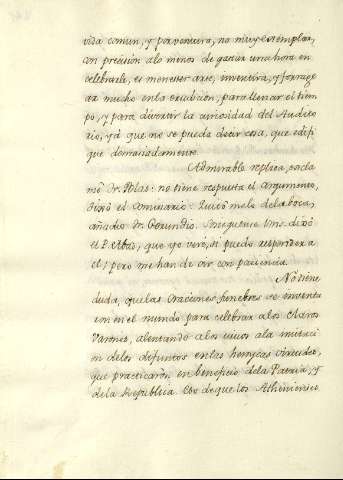 vida comun, y por ventura, no muy exemplar,
con precision alo menos de gastar una hora en
celebrarle, es menester arte, inventiva, y forrage
ar mucho enla erudicion, para llenar el tiem
po, y para divertir la curiosidad del Audito
rio, yá que no se pueda decir cosa, que edifi
que demasiadamente.
Admirable replica, excla
mó Fr. Blas: no tiene respuesta el argumento,
dixo el Comisario: Quitomelo dela boca,
añadio Fr. Gerundio. Sosieguense Vms. dixo
el P. Abad, que yo veré, si puedo responder a
el; pero me han de oir con paciencia.
No tiene
duda, que las Oraciones funebres se inventa
ron en el mundo para celebrar alos Claros
Varones, alentando alos vivos ala imitaci
on delos difuntos en las heroycas virtudes,
que practicaron en beneficio dela Patria, y
dela Republica. Eso de que los Athenienses